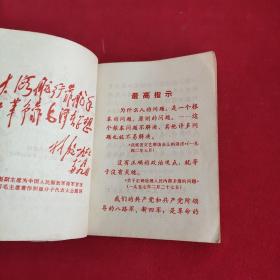 大海航行靠舵手
干革命靠毛泽东思想
林彪
副主席为中国人民解放军海军首次
毛主席著作积极分子代表大会题词
最高指示
为什么人的问题，是一个根
本的问题，原则的问题。……这
个根本问题不解决，其他许多问
题也就不易解决。
《在延安文艺座谈会上的讲话》（一
九四二年五月）
没有正确的政治观点，就等
于没有灵魂。
《关于正确处理人民内部矛盾的问题》
（一九五七年二月二十七日）
我们的共产党和共产党所领
导的八路军、新四军，是革命的